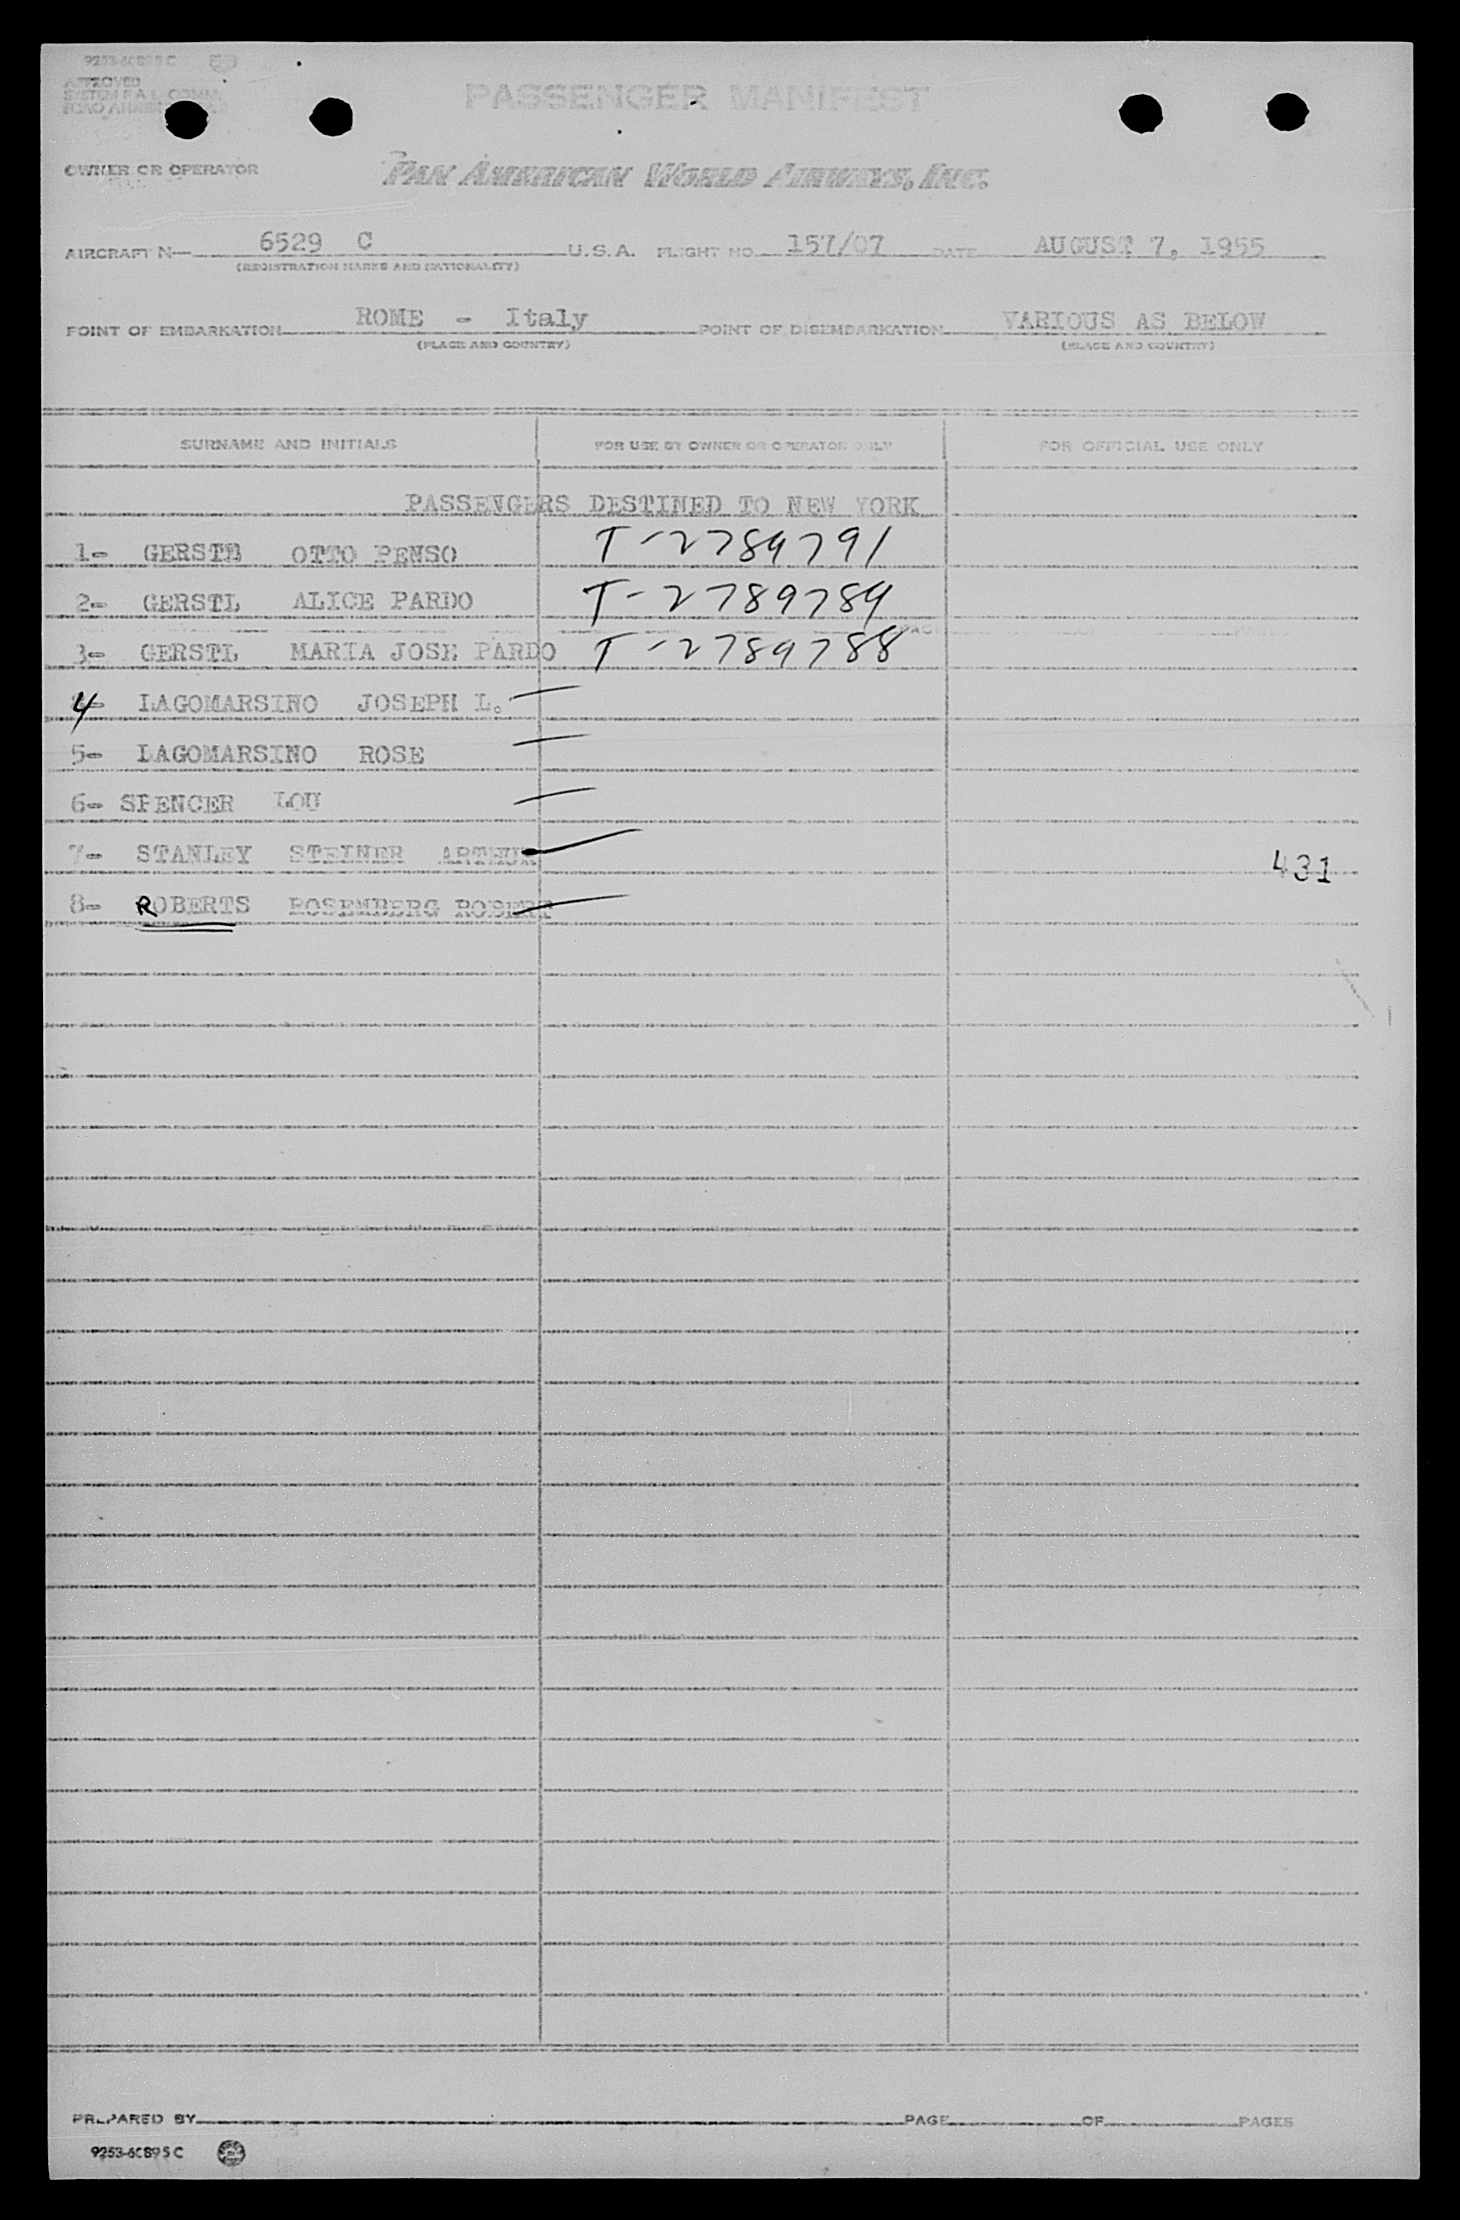 9253-60895C
APPROVED
PASSENGER MANIFEST
OWNER OR OPERATOR PAN AMERICAN WORLD AIRWAYS, INC.
AIRCRAFT N— 6529 C U.S.A. FLIGHT NO. 157/07 DATE AUGUST 7, 1955
(REGISTRATION MARKS AND NATIONALITY)
POINT OF EMBARKATION ROME - Italy POINT OF DISEMBARKATION VARIOUS AS BELOW
(PLACE AND COUNTRY) (PLACE AND COUNTRY)
SURNAME AND INITIALS FOR USE BY OWNER OR OPERATOR ONLY FOR OFFICIAL USE ONLY
PASSENGERS DESTINED TO NEW YORK
1- GERSTL OTTO PENSO T-2789791
2- GERSTL ALICE PARDO T-2789789
3- GERSTL MARIA JOSE PARDO T-2789788
4- LAGOMARSINO JOSEPH L.
5- LAGOMARSINO ROSE
6- SPENCER LOU
7- STANLEY STEINER ARTHUR 431
8- ROBERTS ROSEMBERG ROBERT
PREPARED BY PAGE OF PAGES
9253-60895C